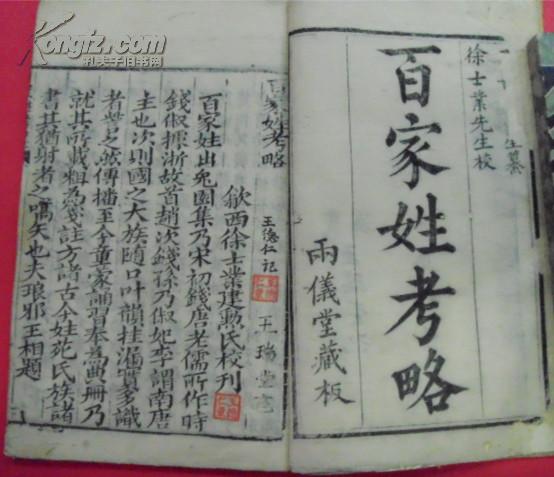 Kongfz.com
孔夫子旧书网
生纂
徐士業先生校
百家姓考略
兩儀堂藏板
百家姓考略
歙西徐士業建勲氏校刊
王德仁記
王瑞堂
百家姓出兔園集乃宋初錢唐老儒所作時
錢俶據浙故首趙次錢孫乃俶妃李謂南唐
主也次則國之大族隨口叶韻挂漏實多識
者訾之然傳播至今童蒙誦習奉為典冊乃
就其所載粗為箋註方諸古今姓苑氏族諸
書其猶射者之嚆矢也夫琅邪王相題